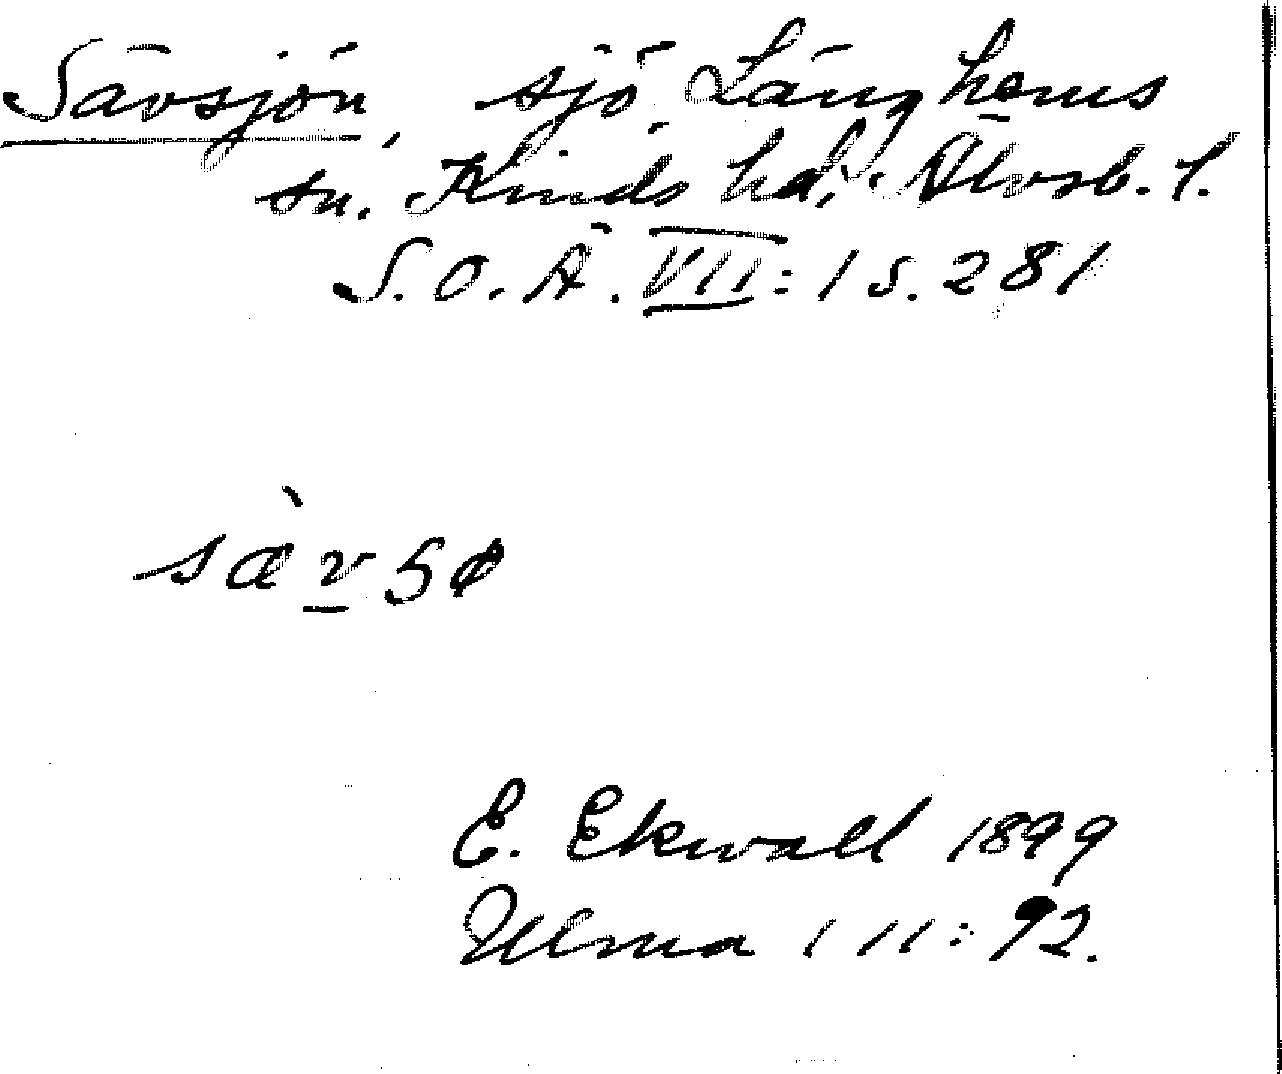 Sävsjön, sjö, Länghems
sn. Kinds hd, Älvsb. l.
S. O. Ä. VII: 1 s. 281
sæ̀vsø
E. Ekwall 1899
Ulma 111: 92.